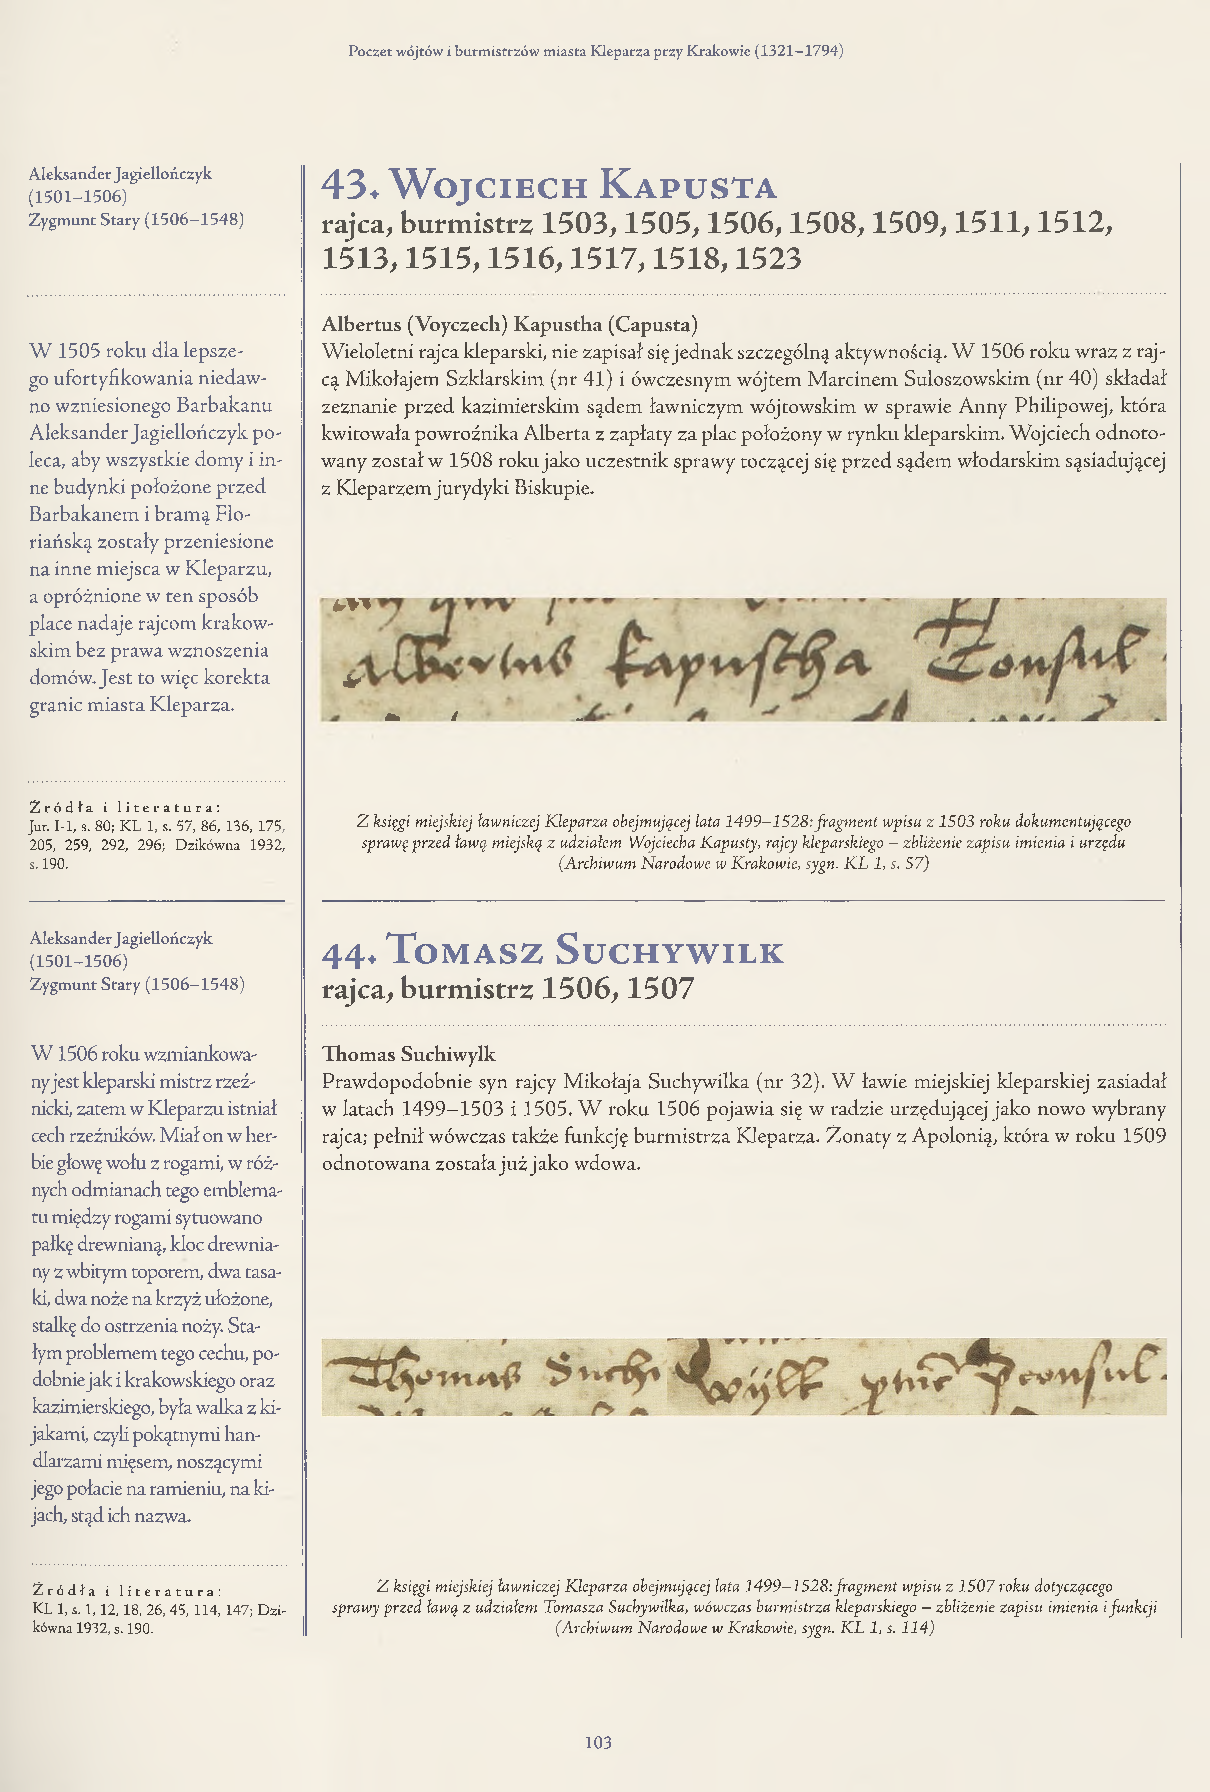 Poczet wójtów i burmistrzów miasta Kleparza przy Krakowie (1321–1794)
Aleksander Jagiellończyk
(1501–1506)
Zygmunt Stary (1506–1548)
W 1505 roku dla lepsze-
go ufortyfikowania niedaw-
no wzniesionego Barbakanu
Aleksander Jagiellończyk po-
leca, aby wszystkie domy i in-
ne budynki położone przed
Barbakanem i bramą Flo-
riańską zostały przeniesione
na inne miejsca w Kleparzu,
a opróżnione w ten sposób
place nadaje rajcom krakow-
skim bez prawa wznoszenia
domów. Jest to więc korekta
granic miasta Kleparza.
Źródła i literatura:
Jur. I-1, s. 80; KL 1, s. 57, 86, 136, 175,
205, 259, 292, 296; Dzikówna 1932,
s. 190.
43. Wojciech Kapusta
rajca, burmistrz 1503, 1505, 1506, 1508, 1509, 1511, 1512,
1513, 1515, 1516, 1517, 1518, 1523
Albertus (Voyczech) Kapustha (Capusta)
Wieloletni rajca kleparski, nie zapisał się jednak szczególną aktywnością. W 1506 roku wraz z raj-
cą Mikołajem Szklarskim (nr 41) i ówczesnym wójtem Marcinem Suloszowskim (nr 40) składał
zeznanie przed kazimierskim sądem ławniczym wójtowskim w sprawie Anny Philipowej, która
kwitowała powroźnika Alberta z zapłaty za plac położony w rynku kleparskim. Wojciech odnoto-
wany został w 1508 roku jako uczestnik sprawy toczącej się przed sądem włodarskim sąsiadującej
z Kleparzem jurydyki Biskupie.
Albertus Kapustha Consul
Z księgi miejskiej ławniczej Kleparza obejmującej lata 1499–1528: fragment wpisu z 1503 roku dokumentującego
sprawę przed ławą miejską z udziałem Wojciecha Kapusty, rajcy kleparskiego – zbliżenie zapisu imienia i urzędu
(Archiwum Narodowe w Krakowie, sygn. KL 1, s. 57)
Aleksander Jagiellończyk
(1501–1506)
Zygmunt Stary (1506–1548)
W 1506 roku wzmiankowa-
ny jest kleparski mistrz rzeź-
nicki, zatem w Kleparzu istniał
cech rzeźników. Miał on w her-
bie głowę wołu z rogami, w róż-
nych odmianach tego emblema-
tu między rogami sytuowano
pałkę drewnianą, kloc drewnia-
ny z wbitym toporem, dwa tasa-
ki, dwa noże na krzyż ułożone,
stalkę do ostrzenia noży. Sta-
łym problemem tego cechu, po-
dobnie jak i krakowskiego oraz
kazimierskiego, była walka z ki-
jakami, czyli pokątnymi han-
dlarzami mięsem, noszącymi
jego połacie na ramieniu, na ki-
jach, stąd ich nazwa.
Źródła i literatura:
KL 1, s. 1, 12, 18, 26, 45, 114, 147; Dzi-
kówna 1932, s. 190.
44. Tomasz Suchywilk
rajca, burmistrz 1506, 1507
Thomas Suchiwylk
Prawdopodobnie syn rajcy Mikołaja Suchywilka (nr 32). W ławie miejskiej kleparskiej zasiadał
w latach 1499–1503 i 1505. W roku 1506 pojawia się w radzie urzędującej jako nowo wybrany
rajca; pełnił wówczas także funkcję burmistrza Kleparza. Żonaty z Apolonią, która w roku 1509
odnotowana została już jako wdowa.
Thomas Suchi wylk pconsul
Z księgi miejskiej ławniczej Kleparza obejmującej lata 1499–1528: fragment wpisu z 1507 roku dotyczącego
sprawy przed ławą z udziałem Tomasza Suchywilka, wówczas burmistrza kleparskiego – zbliżenie zapisu imienia i funkcji
(Archiwum Narodowe w Krakowie, sygn. KL 1, s. 114)
103